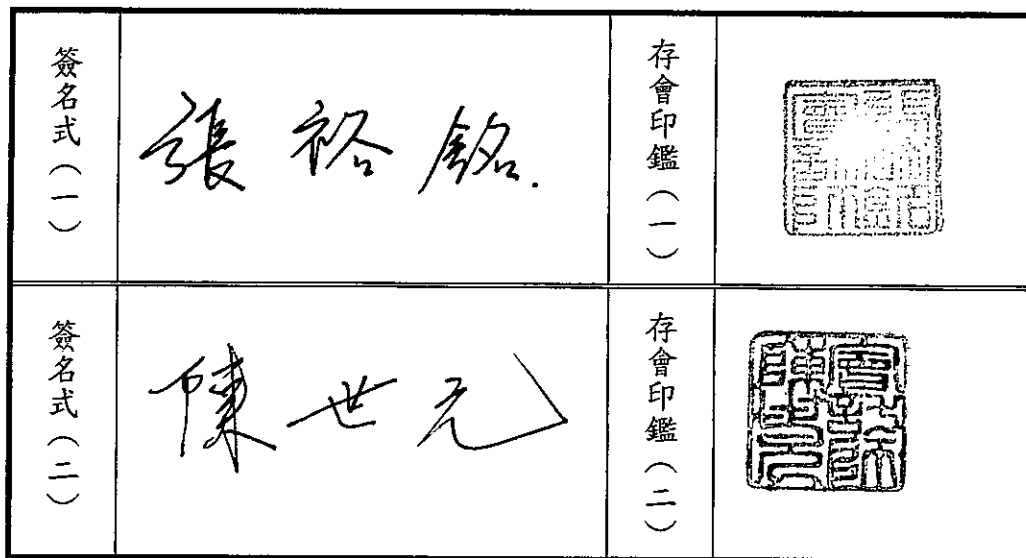 簽名式(一)
張裕銘.
存會印鑑(一)
簽名式(二)
陳世元
存會印鑑(二)